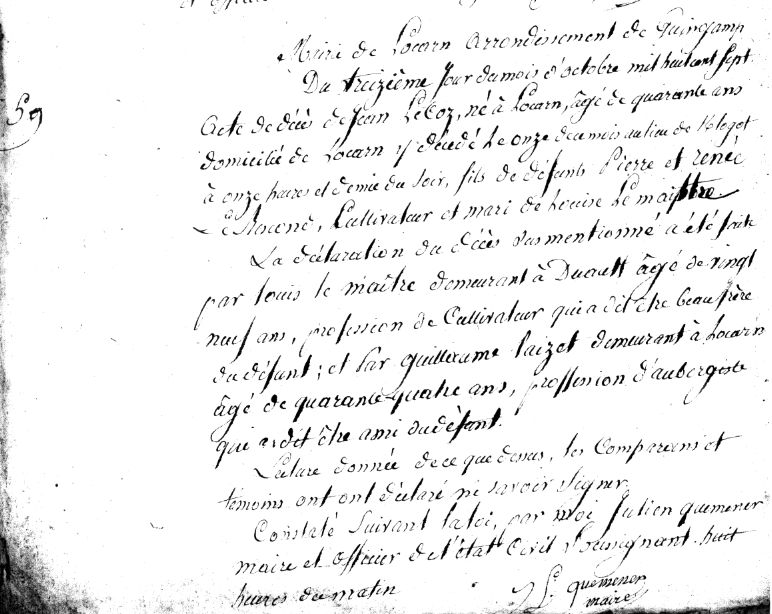 Mairie de Locarn arrondissement de Guingamp
59
Du treizième jour du mois d'octobre mil huit cent sept
Acte de décès de Jean LeCoz, né à Locarn, âgé de quarante ans
domicilié de Locarn y décédé le onze du mois au lieu de
à onze heures et demie du soir, fils de défunts Pierre et renée
Cultivateur et mari de Louise Le maistre.
La déclaration du décès susmentionné a été faite
par louis le maître demeurant à Duault âgé de vingt
neuf ans, profession de Cultivateur qui a dit être beau frère
du défunt; et par guillaume laizet demeurant à Locarn
âgé de quarante quatre ans, proffession d'aubergiste
qui a dit être ami du défunt.
Lecture donnée de ce que dessus, les Comparans et
témoins ont ont déclaré ni savoir signer.
Constaté Suivant la loi, par moi Julien quemener
maire et officier de l'état Civil Soussignant. huit
heures du matin
J. Le quemener
maire